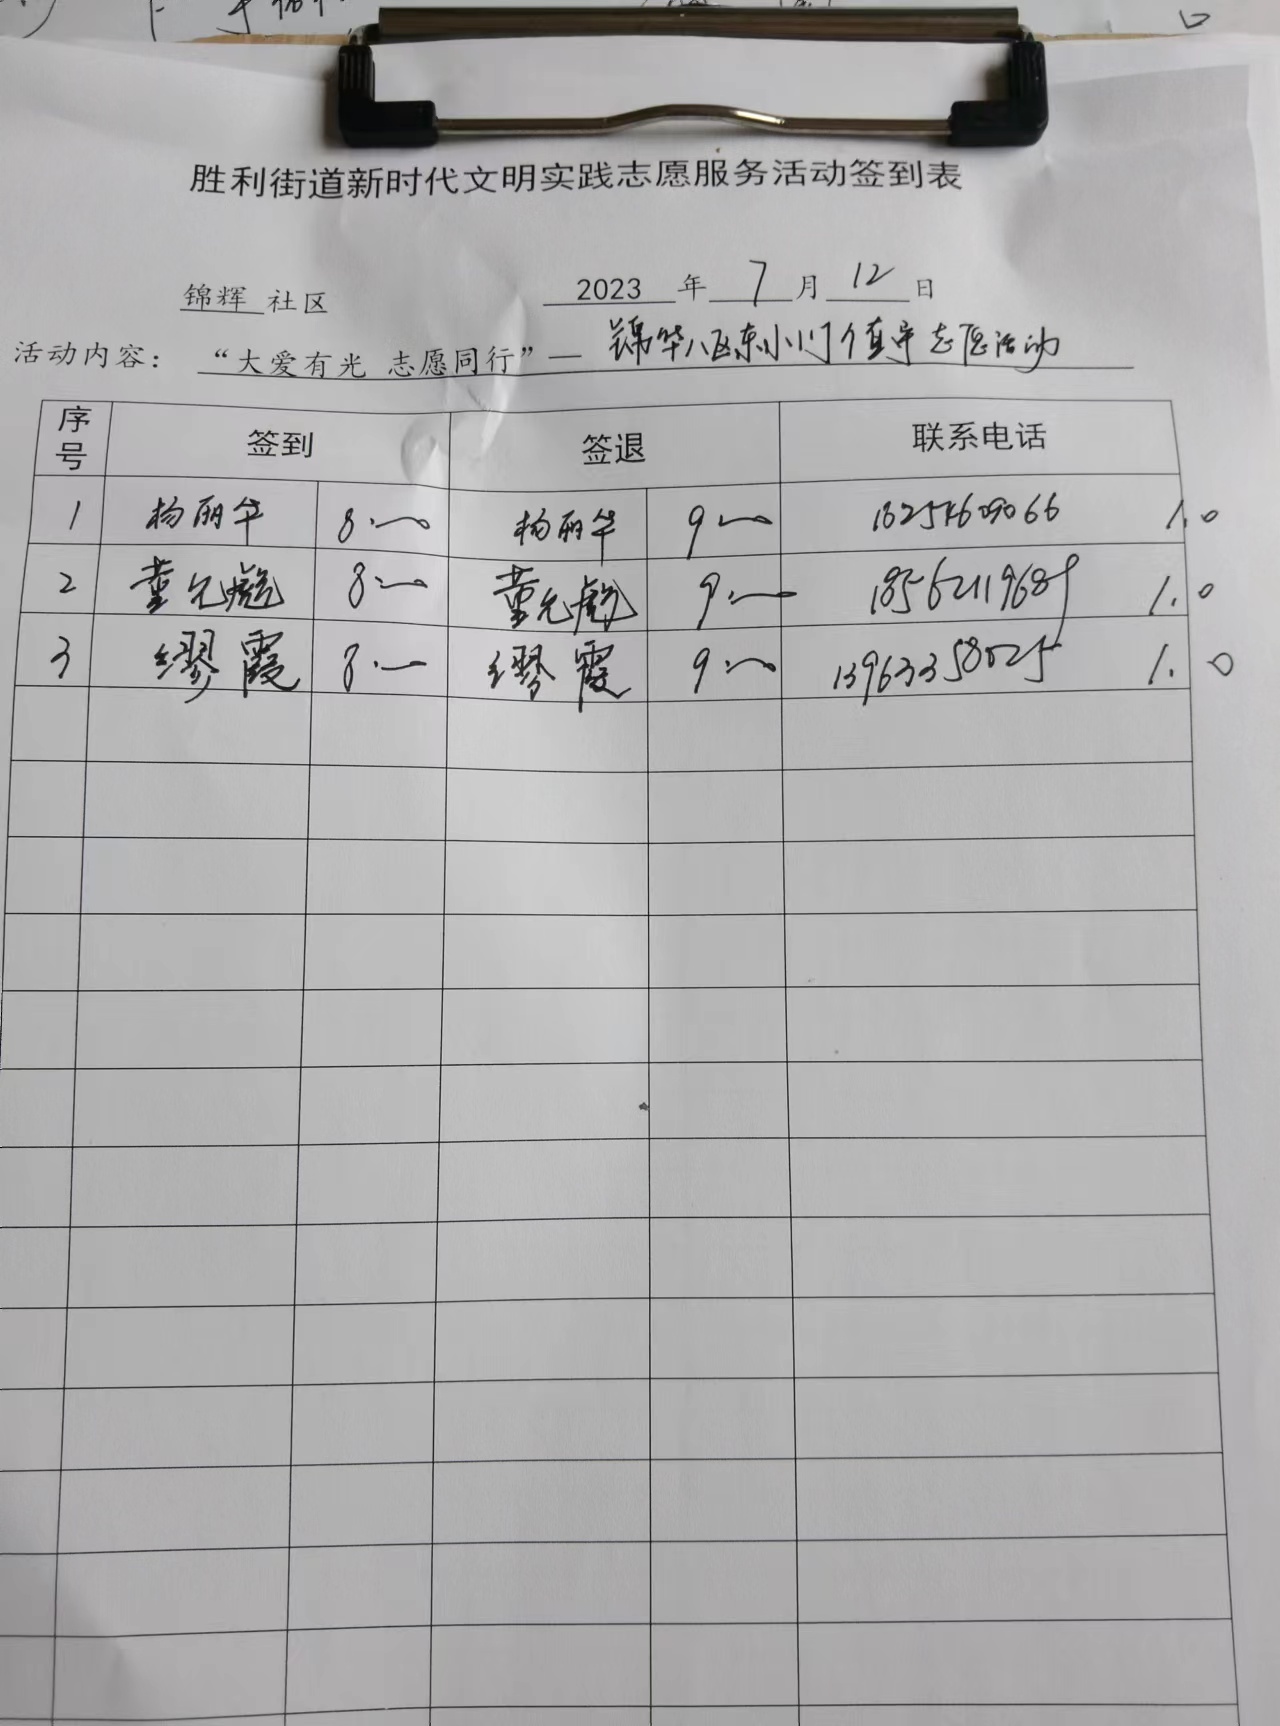 胜利街道新时代文明实践志愿服务活动签到表
锦辉 社区 2023 年 7 月 12 日
活动内容： “大爱有光 志愿同行”— 锦华八区东小门值守志愿活动
序号 签到 签退 联系电话
1 杨丽华 8:00 杨丽华 9:00 1.0
2 董允彪 8:00 董允彪 9:00 18562119689 1.0
3 缪霞 8:00 缪霞 9:00 13963358025 1.0